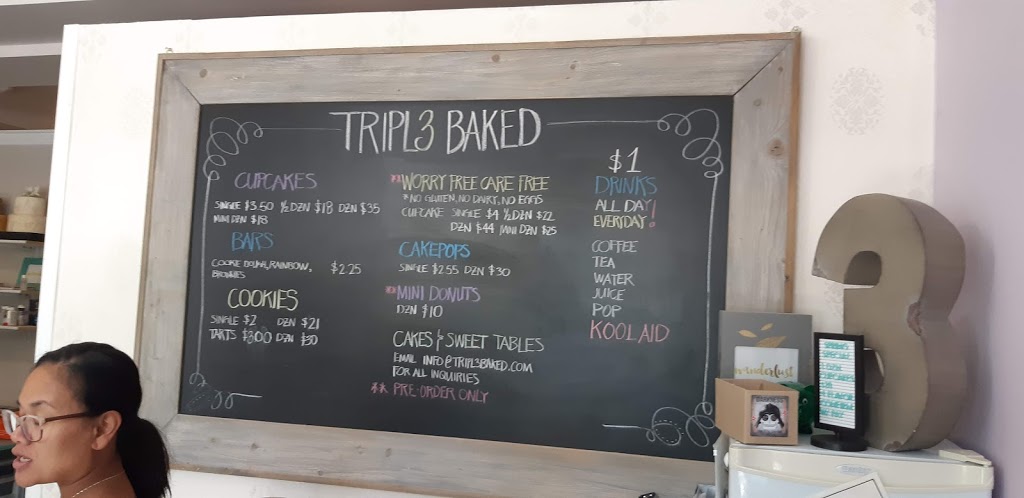 TRIPL3 BAKED
CUPCAKES
SINGLE $3.50 ½ DZN $18 DZN $35
MINI DZN $18
BARS
COOKIE DOUGH, RAINBOW, $2.25
BROWNIES
COOKIES
SINGLE $2 DZN $21
TARTS $3.00 DZN $30
**WORRY FREE CARE FREE
*NO GLUTEN, NO DAIRY, NO EGGS
CUPCAKE SINGLE $4 ½ DZN $22
DZN $44 MINI DZN $25
CAKEPOPS
SINGLE $2.55 DZN $30
*MINI DONUTS
DZN $10
CAKES & SWEET TABLES
EMAIL INFO@TRIPL3BAKED.COM
FOR ALL INQUIRIES
** PRE-ORDER ONLY
$1
DRINKS
ALL DAY
EVERYDAY!
COFFEE
TEA
WATER
JUICE
POP
KOOLAID
wanderlust
3